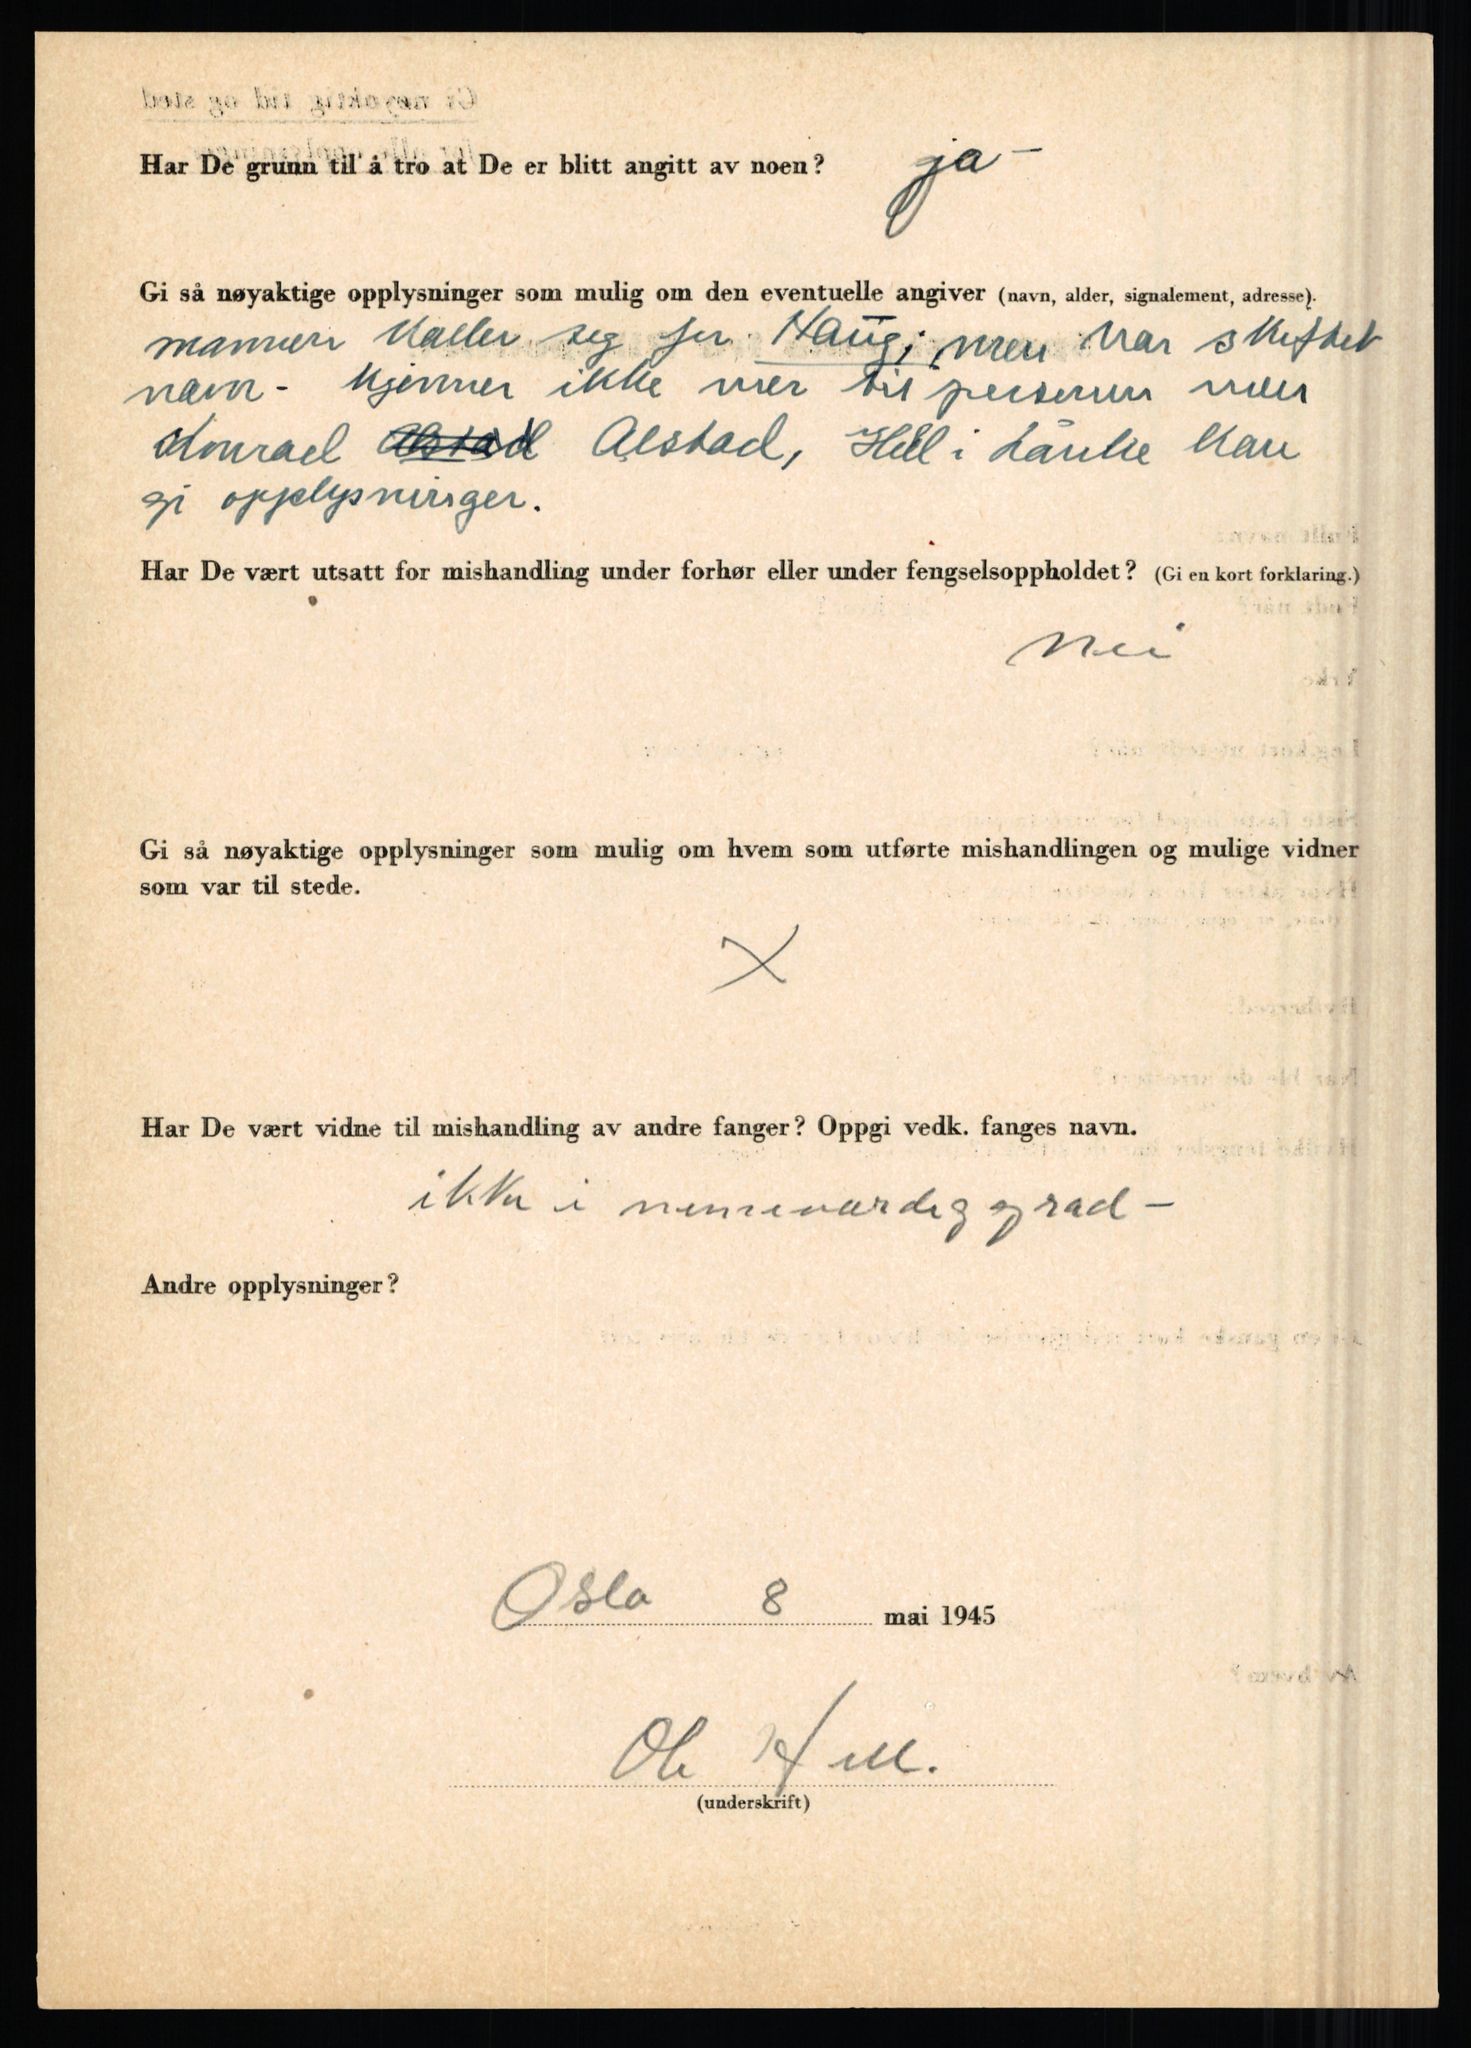 Har De grunn til å tro at De er blitt angitt av noen? ja –
Gi så nøyaktige opplysninger som mulig om den eventuelle angiver (navn, alder, signalement, adresse).
mannen kaller seg for Haug, men har skiftet
navn - kjenner ikke mer til personen men
Konrad Alstad, Hell i Lånke kan
gi opplysninger.
Har De vært utsatt for mishandling under forhør eller under fengselsoppholdet? (Gi en kort forklaring.)
Nei
Gi så nøyaktige opplysninger som mulig om hvem som utførte mishandlingen og mulige vidner
som var til stede.
X
Har De vært vidne til mishandling av andre fanger? Oppgi vedk. fanges navn.
ikke i nevneverdig grad –
Andre opplysninger?
Oslo 8 mai 1945
Ole Hill.
(underskrift)